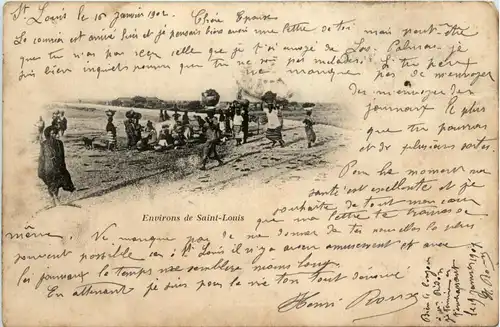 St Louis le 16 Janvier 1902. Chère Epouse
Le courrier est arrivé hier et je pensais bien avoir une lettre de toi mais peut-être
que tu n'as pas reçu celle que je t'ai envoyé de Las Palmas je
suis bien inquiet pourvu que tu ne sois pas malade. Si tu peux
ne manque pas de m'envoyer
des journaux le plus
que tu pourras
et de plusieurs sortes.
Pour le moment ma
santé est excellente et je
souhaite de tout mon cœur
que ma lettre te trouve de
Environs de Saint-Louis
même. Ne manque pas de me donner de tes nouvelles le plus
souvent possible car à St Louis il n'y a aucun amusement et avec
les journaux le temps me semblera moins long.
En attendant je suis pour la vie ton tout dévoué
Henri
le 19 janvier 190